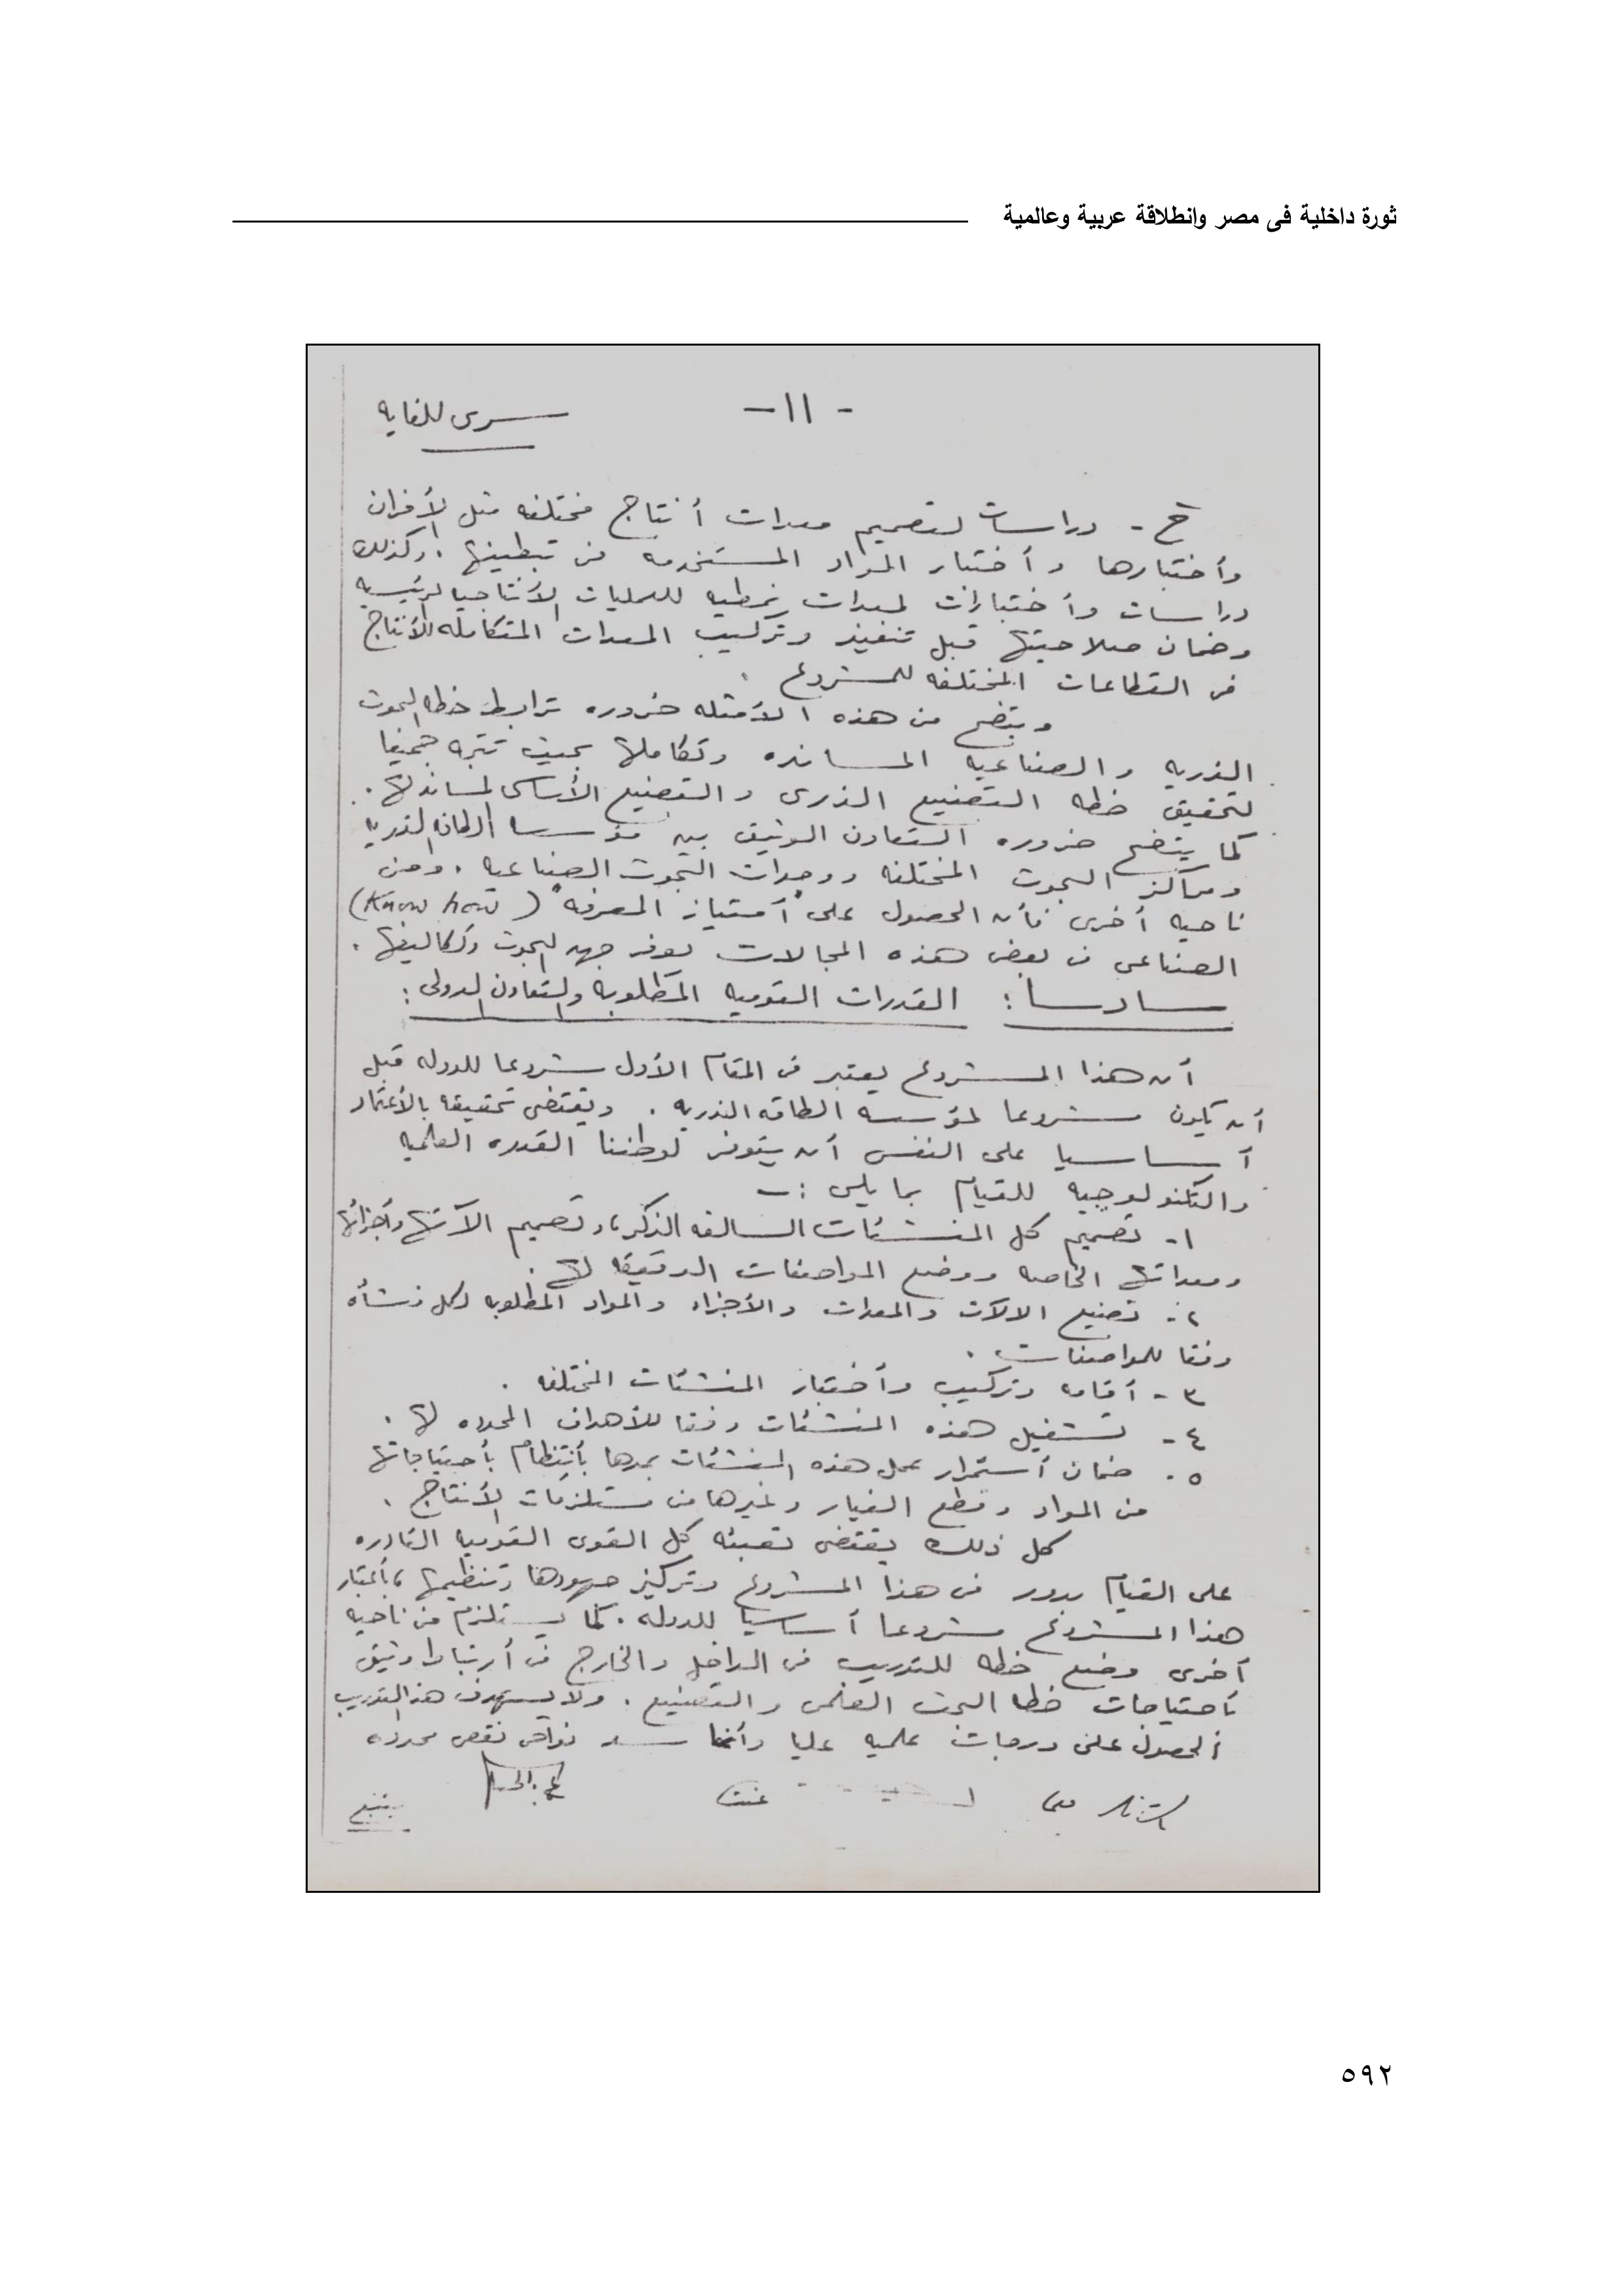 ثورة داخلية فى مصر وانطلاقة عربية وعالمية
- ١١ -
سرى للغايه
خ - دراسات لتصميم معدات أنتاج مختلفه مثل الأفران
وأختبارها وأختبار المواد المستخدمه فى تبطينها . وكذلك
دراسات وأختبارات لمعدات نمطيه للعمليات الأنتاجيه الرئيسيه
وضمان صلاحيتها قبل تنفيذ وتركيب المعدات المتكامله للأنتاج
فى القطاعات المختلفه للمشروع .
ويتضح من هذه الأمثله ضروره ترابط خطه البحوث
الذريه والصناعيه المسانده وتكاملها بحيث تتجه جميعا
لتحقيق خطه التصنيع الذرى والتصنيع الأساسى لمساندتها .
كما يتضح ضروره التعاون الوثيق بين مؤسسه الطاقه الذريه
ومراكز البحوث المختلفه ووحدات البحوث الصناعيه . ومن
ناحيه أخرى فأن الحصول على "أمتياز المعرفه" (Know how)
الصناعى فى بعض هذه المجالات يوفر جهد البحوث وتكاليفها .
سادسا : القدرات القوميه المطلوبه والتعاون الدولى :
أن هذا المشروع يعتبر فى المقام الأول مشروعا للدوله قبل
أن يكون مشروعا لمؤسسه الطاقه الذريه . ويقتضى تحقيقه بالأعتماد
أساسيا على النفس أن يتوفر لوطننا القدره العلميه
والتكنولوجيه للقيام بما يلى :-
١- تصميم كل المنشئات السالفه الذكر ، وتصميم الآتها وأجزائها
ومعداتها الخاصه ووضع المواصفات الدقيقه لها .
٢- تصنيع الالآت والمعدات والأجزاء والمواد المطلوبه لكل منشأه
وفقا للمواصفات .
٣- أقامه وتركيب وأختبار المنشئات المختلفه .
٤- تشغيل هذه المنشئات وفقا للأهداف المحدده لها .
٥- ضمان أستمرار عمل هذه المنشئات بمدها بأنتظام بأحتياجاتها
من المواد وقطع الغيار وغيرها من مستلزمات الأنتاج .
كل ذلك يقتضى تعبئه كل القوى القوميه القادره
على القيام بدور فى هذا المشروع وتركيز جهودها وتنظيمها ، بأعتبار
هذا المشروع مشروعا أساسيا للدوله . كما يستلزم من ناحيه
أخرى وضع خطه للتدريب فى الداخل والخارج فى أرتباط وثيق
بأحتياجات خطا البحث العلمى والتصنيع . ولا يستهدف هذا التدريب
الحصول على درجات علميه عليا وأنما سد نواحى نقص محدده
يتبع
٥٩٢